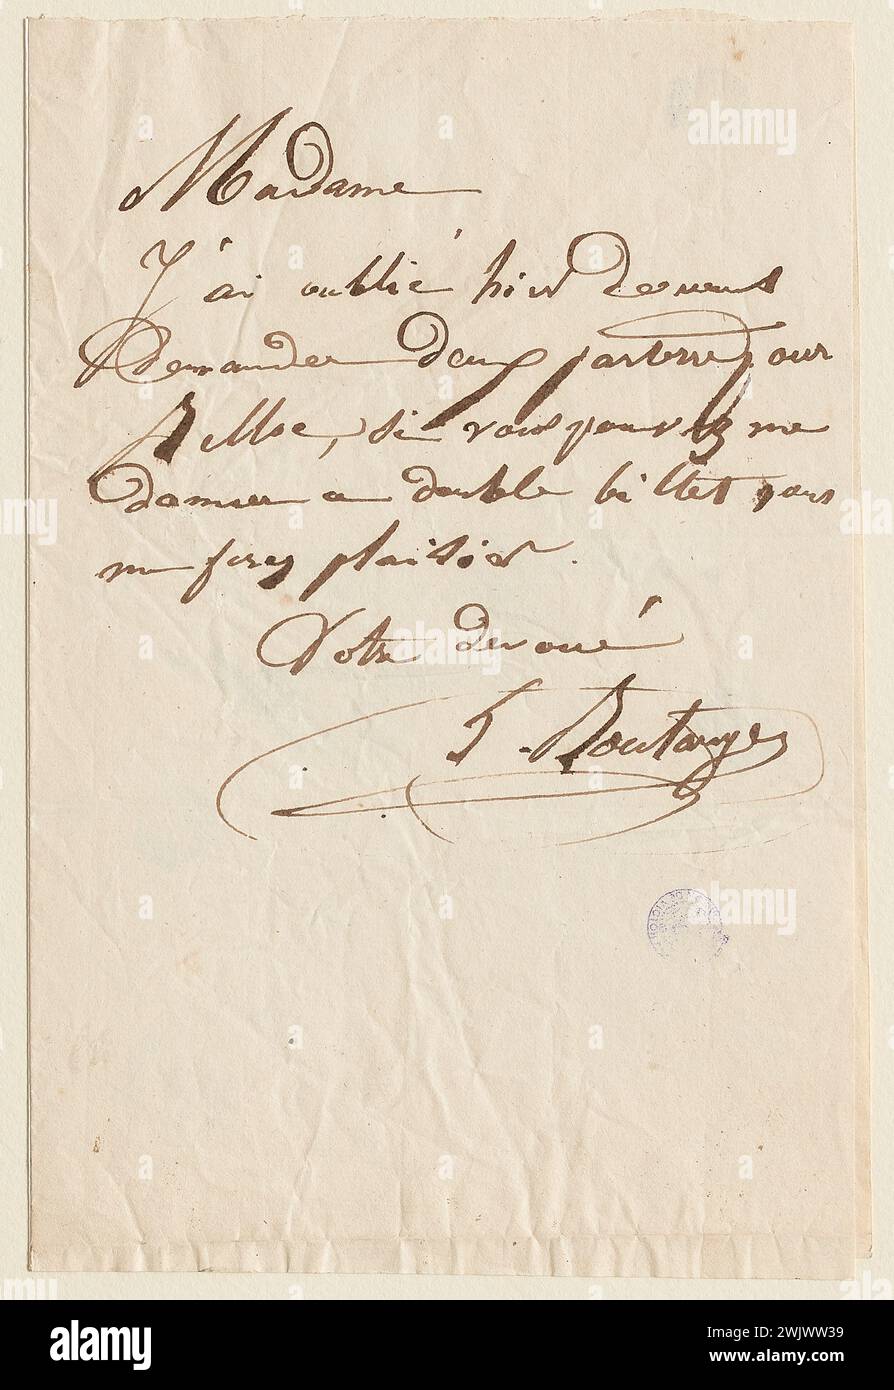 Madame
J'ai oublié hier de vous
demander deux parterre pour
si vous pouvez me
donner ce double billet vous
me ferez plaisir.
Votre devoué
Boulanger
alamy
Image ID: 2WJWW39
www.alamy.com